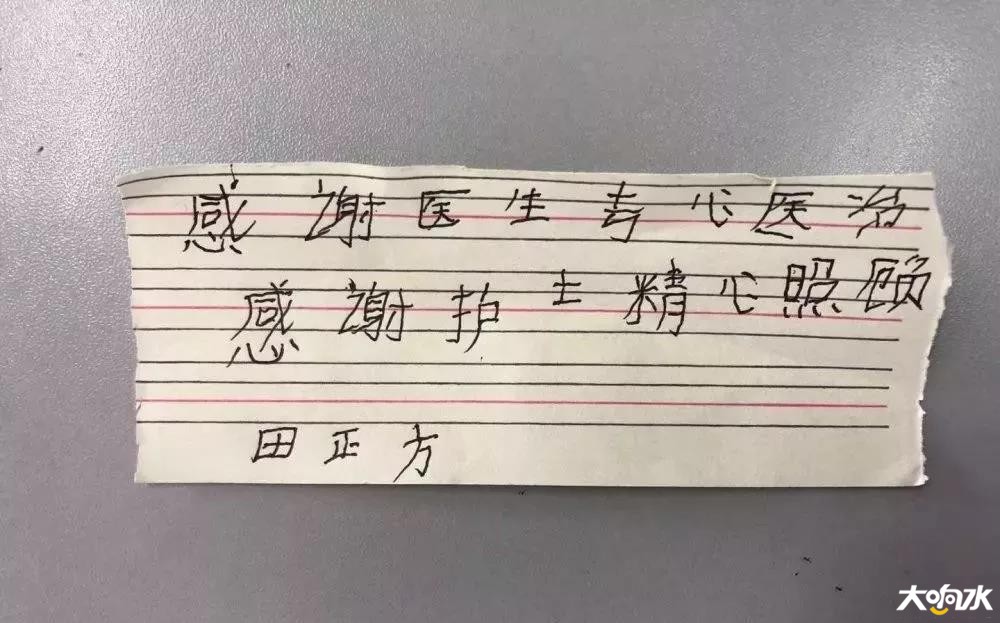 感谢医生专心医治
感谢护士精心照顾
田正方
大响水